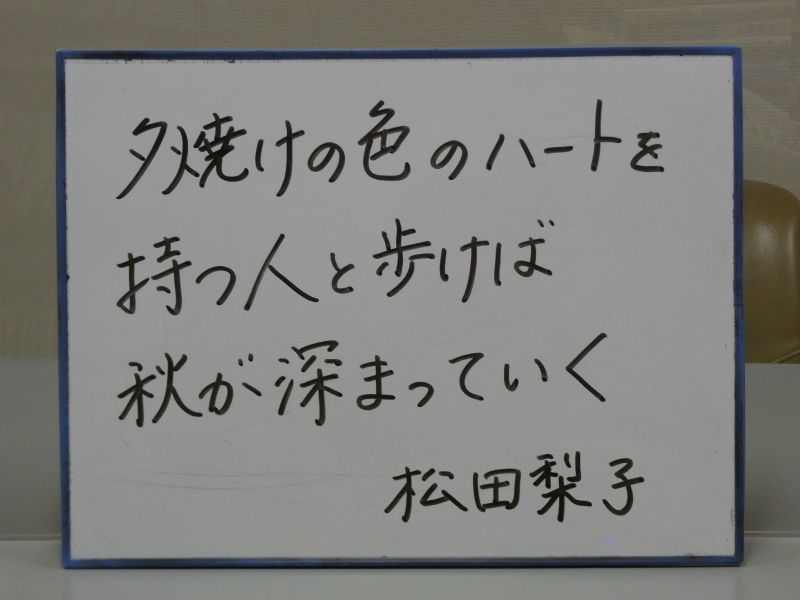 夕焼けの色のハートを
持つ人と歩けば
秋が深まっていく
松田梨子